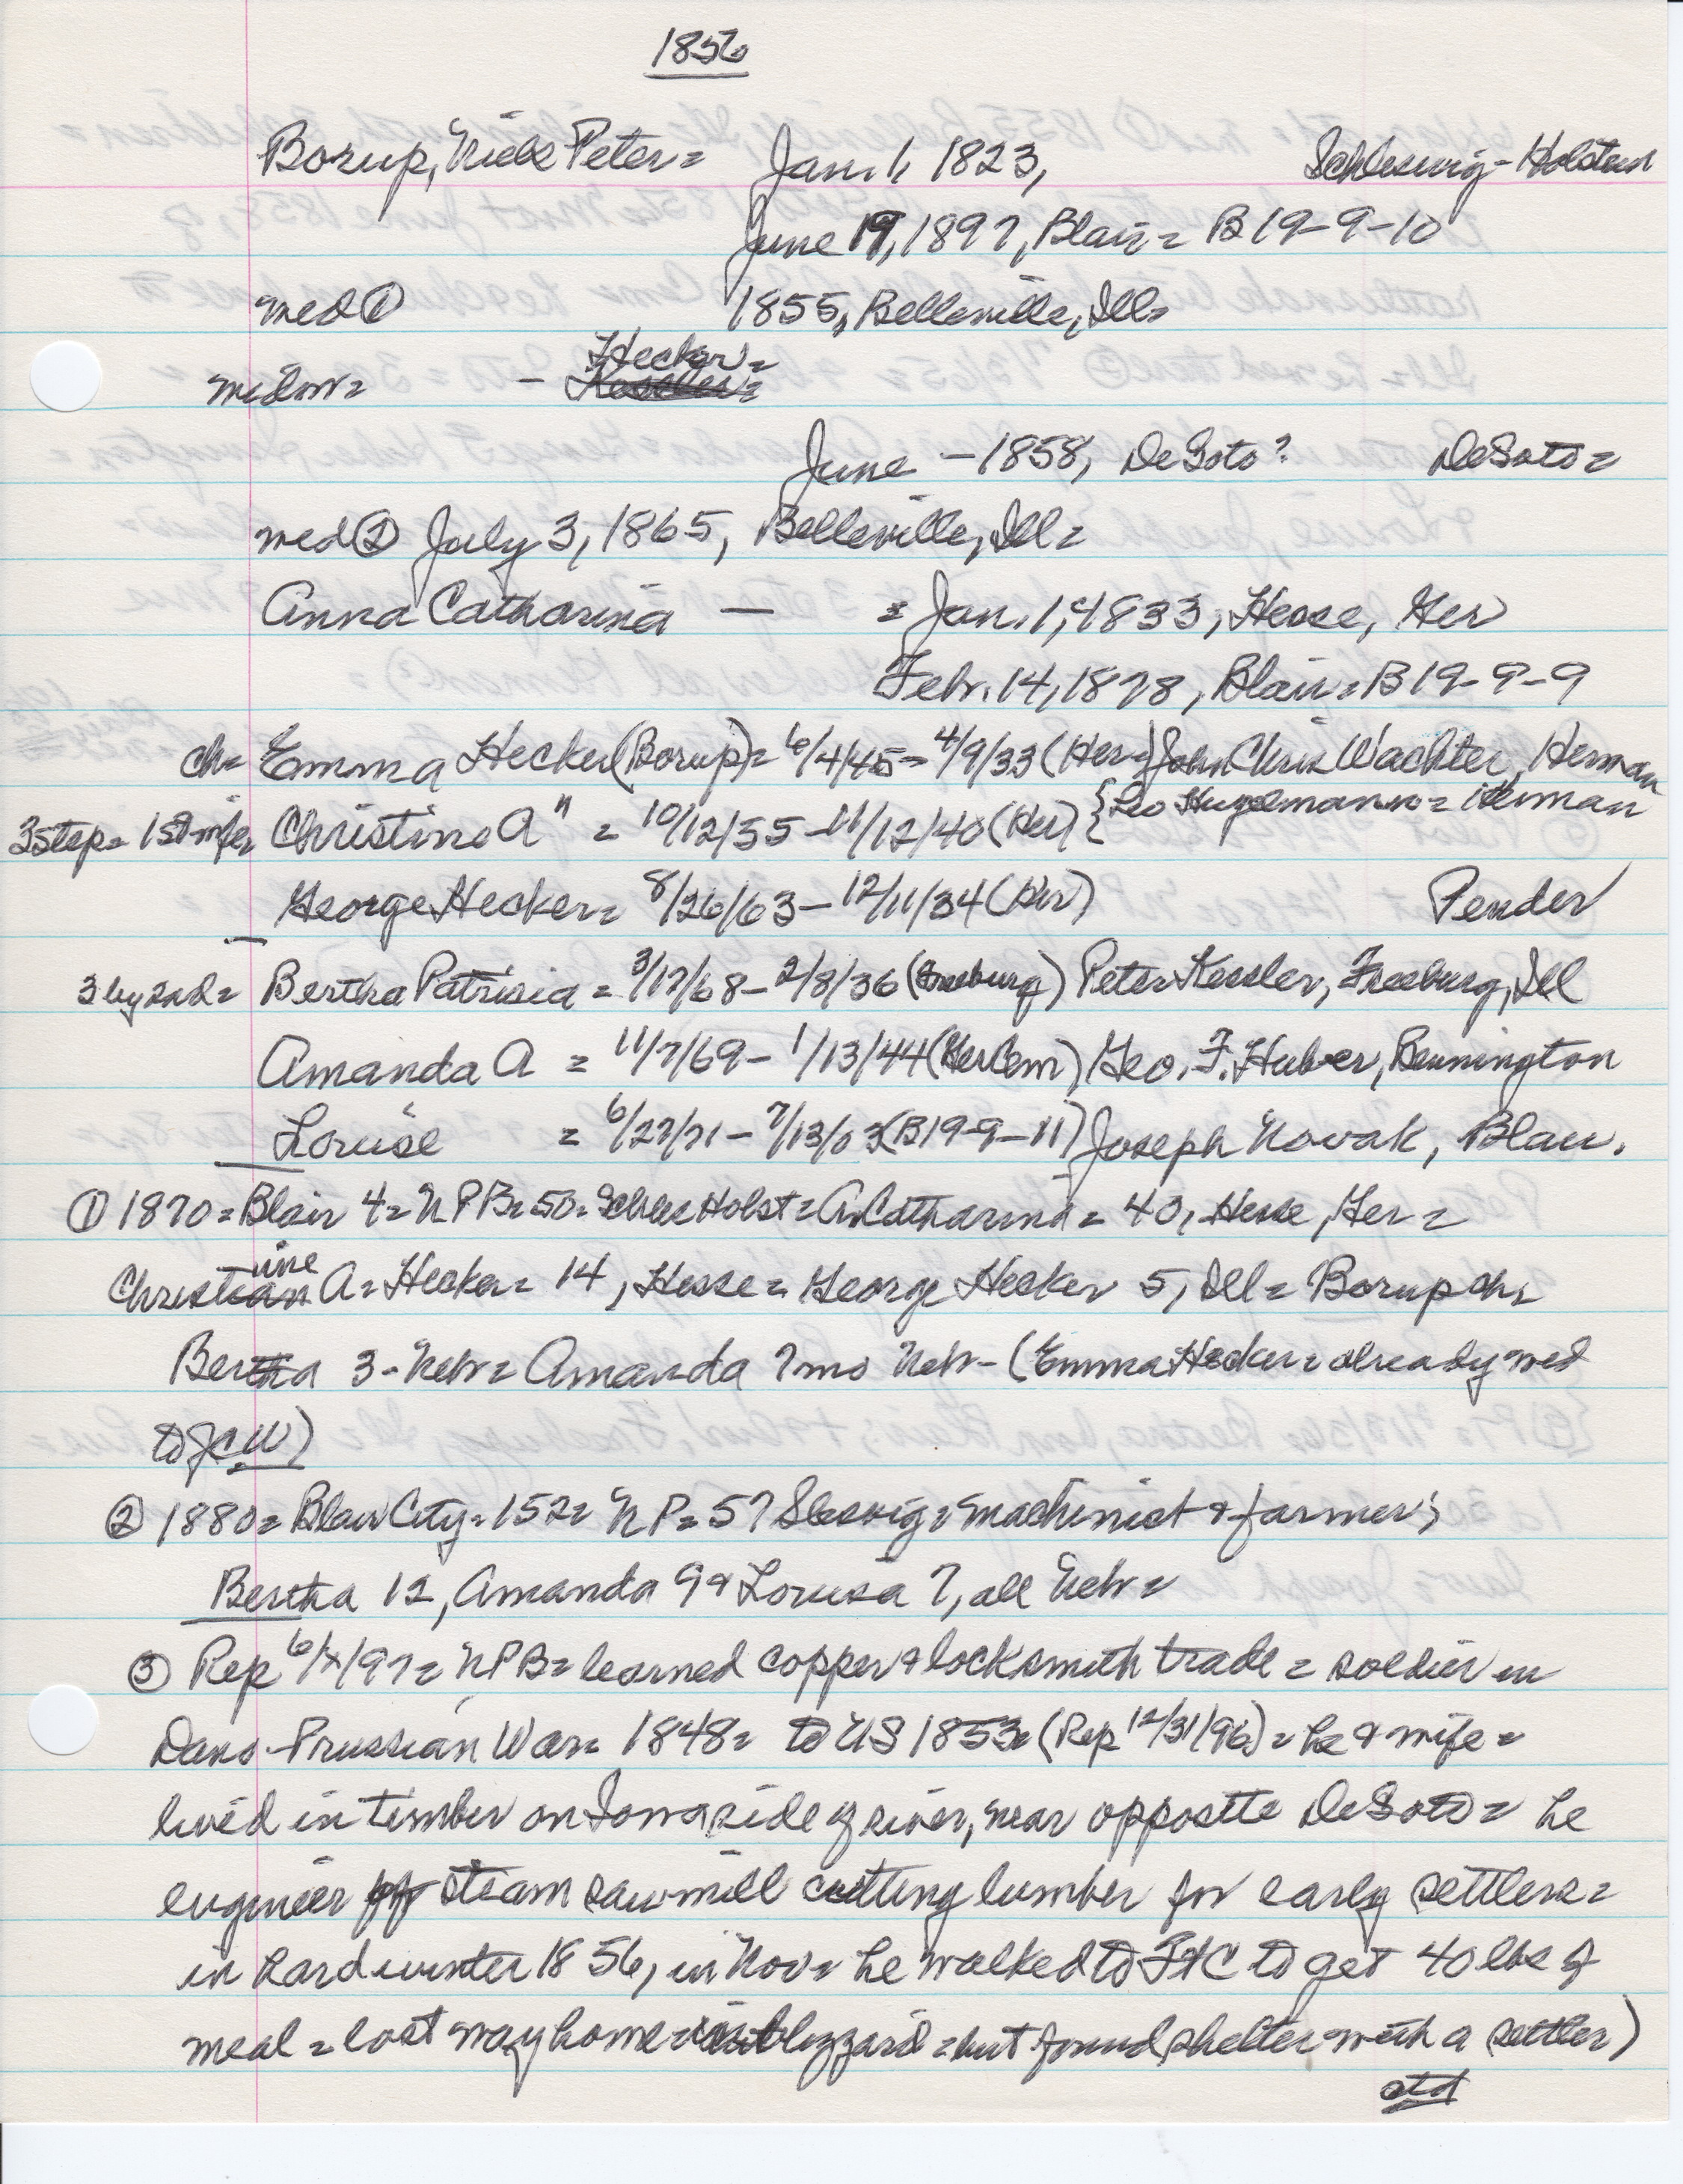 1856
Borup, Niels Peter = Jan. 1, 1823, Schleswig-Holstein
June 19, 1897, Blair = B 19-9-10
med ① 1855, Belleville, Ill =
- Hecker =
June - 1858, DeSoto? DeSoto =
med ② July 3, 1865, Belleville, Ill =
Anna Catharina — = Jan. 1, 1833, Hesse, Ger
Febr. 14, 1878, Blair = B 19-9-9
ch = Emma Hecker (Borup) = 6/4/45 - 4/9/33 (Her =) John Chris Wachter, Herman
3 step = 1st wife, Christine A " = 10/12/55 - 11/12/40 (Her) { Leo Hugelmann = Herman
George Hecker = 8/26/63 - 12/11/34 (Her) Pender
3 by 2nd = Bertha Patrisia = 3/17/68 - 2/8/36 (Freeburg) Peter Kessler, Freeburg, Ill
Amanda A = 11/7/69 - 1/13/44 (Her Cem) Geo. F. Huber, Bennington
Louise = 6/27/71 - 7/13/03 (B 19-9-11) Joseph Novak, Blair.
① 1870 = Blair 4 = NPB = 50 = Schles Holst = A Catharina = 40, Hesse, Ger =
Christine A = Hecker = 14, Hesse = George Hecker 5, Ill = Borup ch =
Bertha 3 - Nebr = Amanda 7 mo Nebr - (Emma Hecker = already med
to JCW)
② 1880 = Blair City = 152 = NP = 57 Slesvig = machinist & farmer;
Bertha 12, Amanda 9 & Louisa 7, all Nebr =
③ Rep 6/x/97 = NPB = learned copper & locksmith trade = soldier in
Dano-Prussian War = 1848 = to US 1853 = (Rep 12/31/96) = he & wife =
lived in timber on Iowa side of river, near opposite DeSoto = he
engineer of steam sawmill cutting lumber for early settlers =
in hard winter 1856, in Nov = he walked to FtC to get 40 lbs of
meal = lost way home in blizzard = but found shelter with a settler)